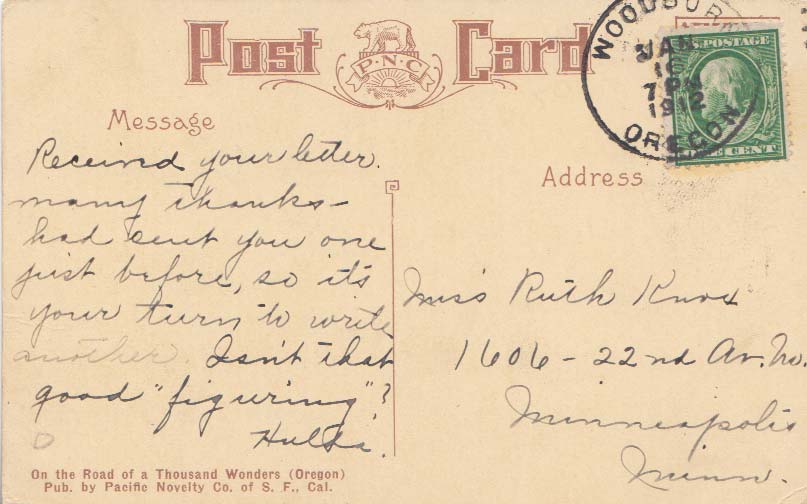 Post Card
P·N·C
WOODBURN
JAN
16
7 PM
1912
OREGON
U.S. POSTAGE
ONE CENT
Message
Received your letter.
many thanks—
had sent you one
just before, so it's
your turn to write
another. Isn't that
good "figuring"?
Hulda.
Address
Miss Ruth Knox
1606 - 22nd Av. No.
Minneapolis
Minn.
On the Road of a Thousand Wonders (Oregon)
Pub. by Pacific Novelty Co. of S. F., Cal.